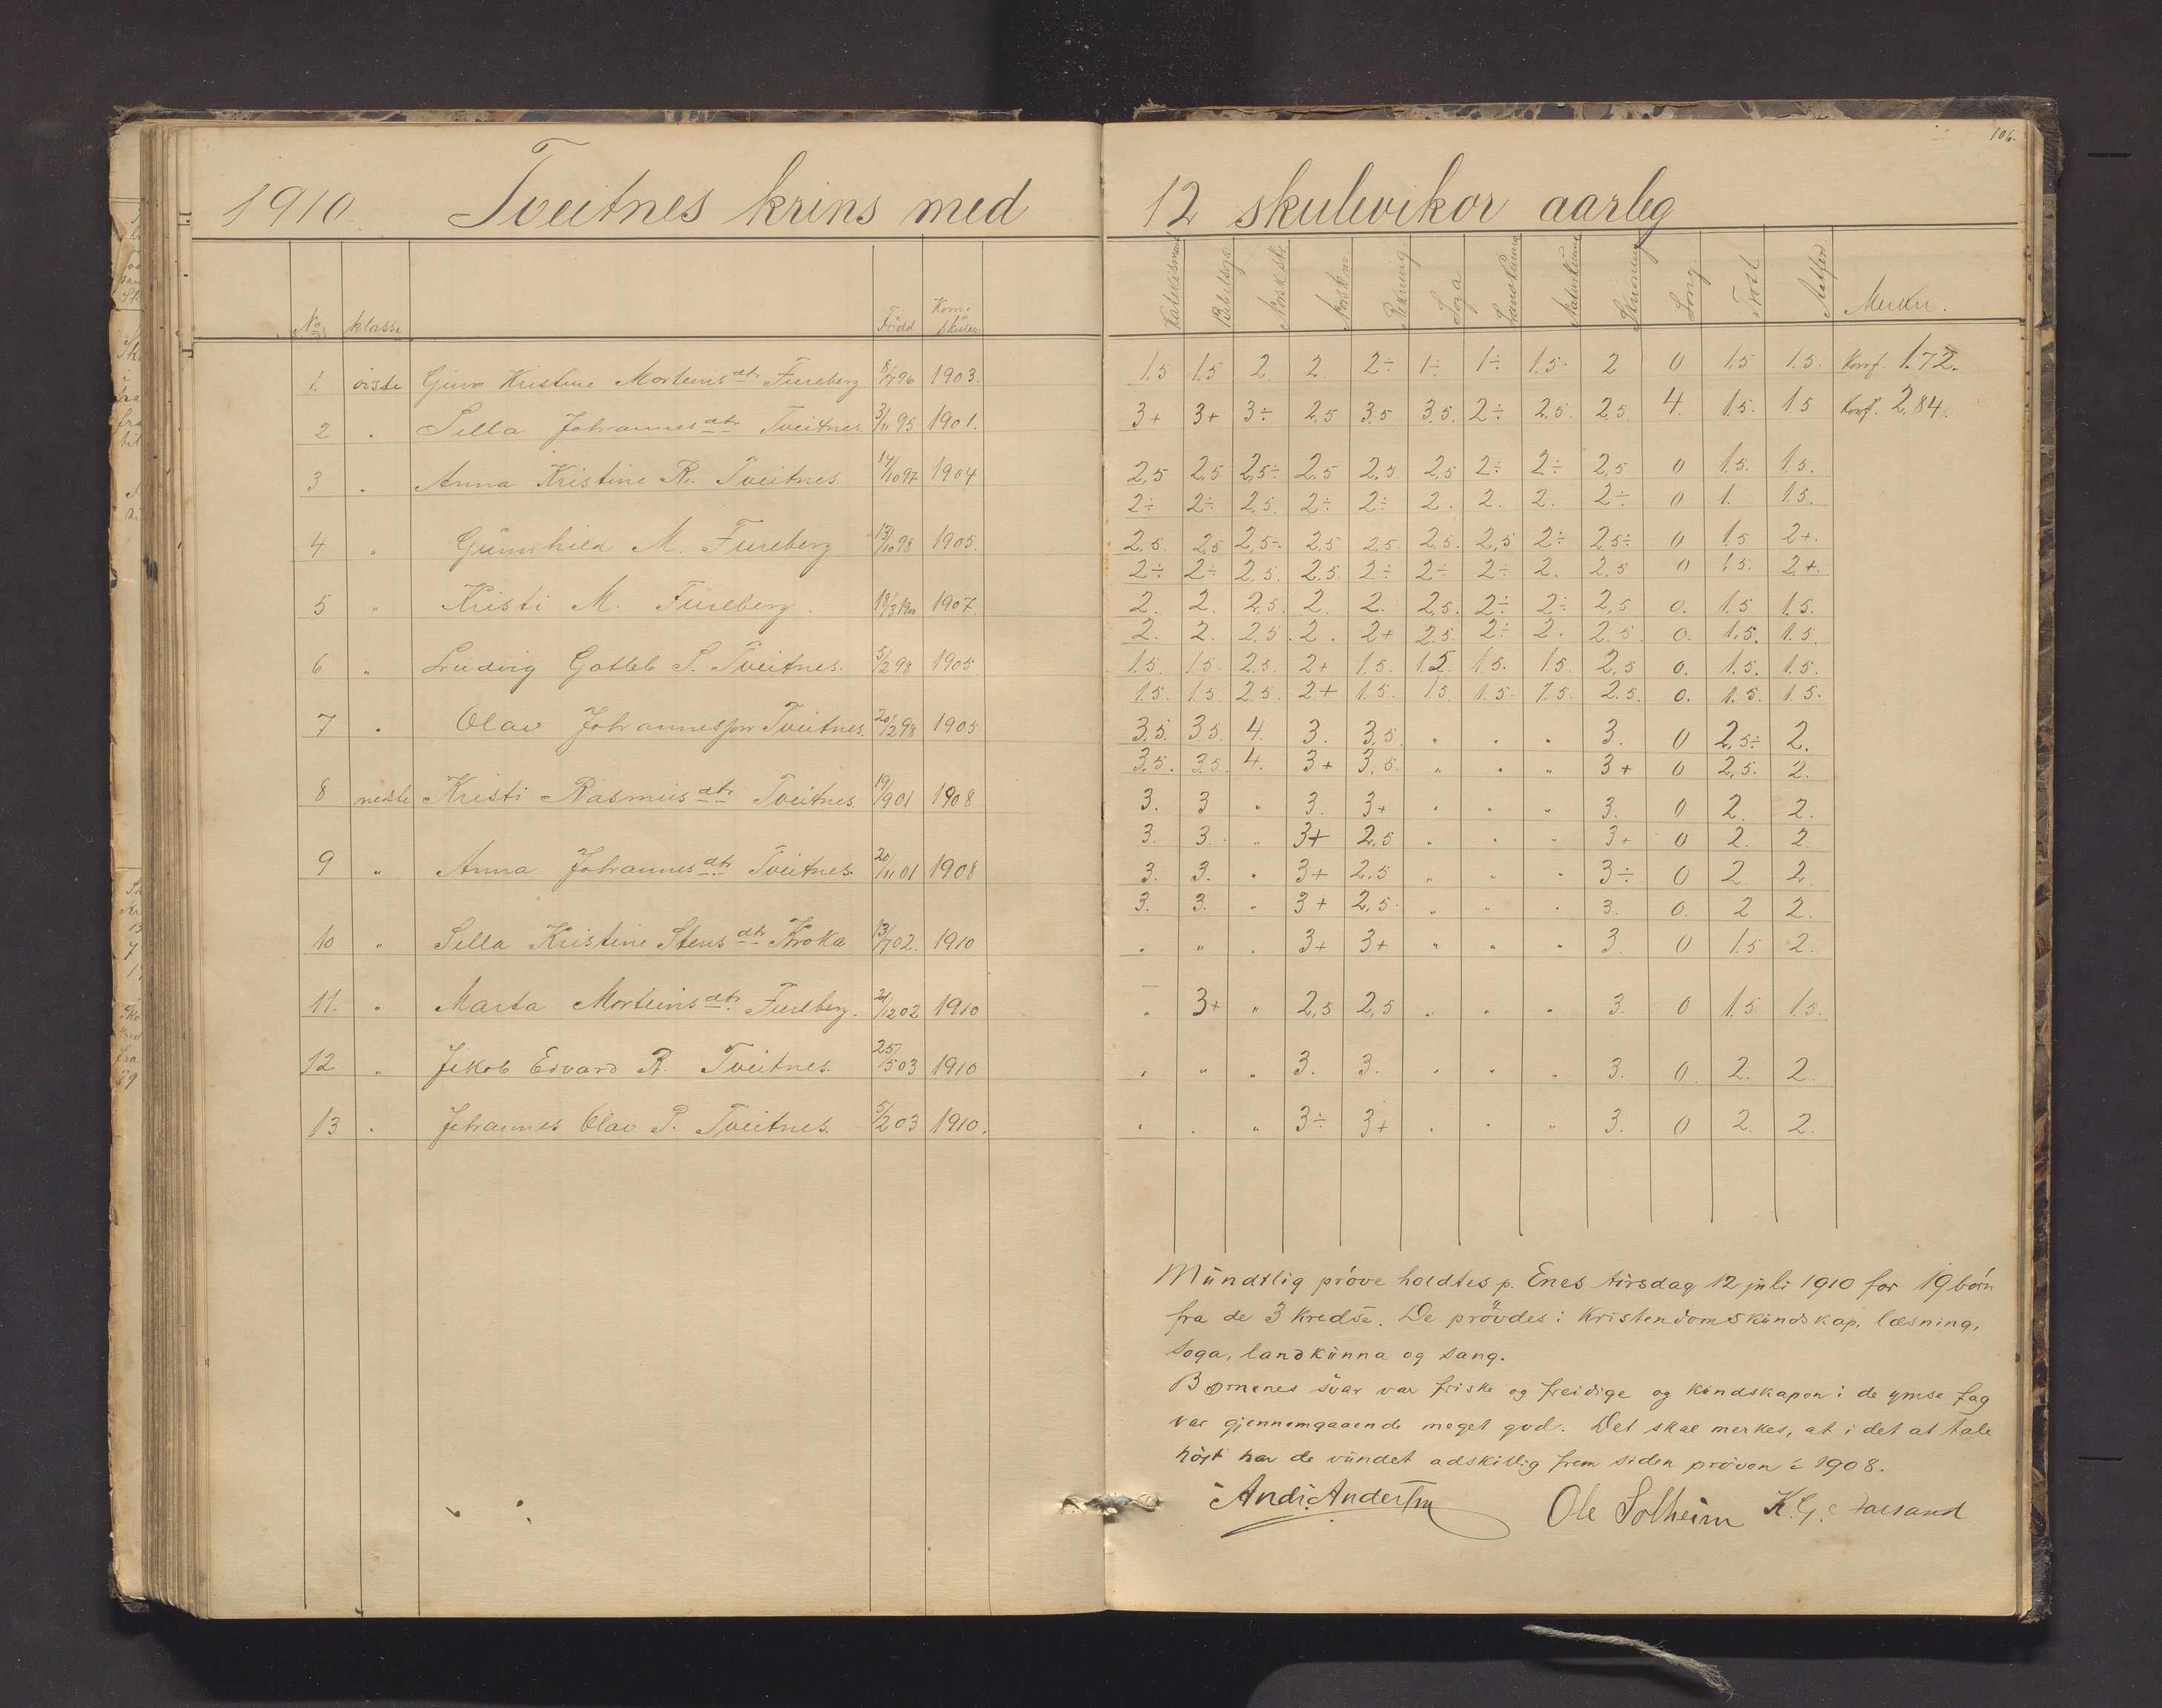 106.
1910. Tveitnes krins med 12 skulevikor aarleg
No klasse Född Kom i skulen Katekisme Bibelsoga Norsk sk. Norsk m. Rekning Soga Landkunna Naturkunna Skrivning Song Flid Aatferd Merkn.
1. øiste Guro Kristine Morteins dtr Fureberg 8/7 96 1903. 1.5 1.5 2. 2. 2÷ 1÷ 1÷ 1.5. 2 0 1.5 1.5. Konf. 1.72.
2 " Sella Johannes dtr Tveitnes. 3/11 95 1901. 3+ 3+ 3÷ 2.5 3.5 3.5. 2÷ 2.5. 2.5. 4. 1.5. 1.5 Konf. 2,84.
3 " Anna Kristine R. Tveitnes. 14/10 97 1904 2,5 2,5 2,5÷ 2,5 2,5. 2,5 2÷ 2÷ 2,5 0 1.5. 1.5.
2÷ 2÷ 2,5. 2÷ 2÷ 2. 2. 2. 2÷ 0 1. 1.5.
4 " Gunnhild M. Fureberg 13/10 98 1905. 2,5. 2,5 2,5÷. 2,5 2,5. 2,5. 2,5 2÷ 2,5÷ 0 1.5 2+.
2÷ 2÷ 2.5. 2.5. 2÷ 2÷ 2÷ 2. 2,5 0 1.5. 2+.
5 " Kristi M. Fureberg. 18/3 1900 1907. 2. 2. 2,5. 2. 2. 2,5. 2÷ 2÷ 2,5 0. 1.5 1.5.
2. 2. 2.5. 2. 2+ 2.5. 2÷ 2. 2.5. 0. 1.5. 1.5.
6 " Ludvig Gotleb S. Tveitnes. 5/2 98 1905 1.5. 1.5. 2.5. 2+ 1.5. 1.5. 1.5. 1.5. 2,5 0. 1.5. 1.5.
1.5. 1.5. 2.5. 2+ 1.5. 1.5 1.5. 1.5. 2.5. 0. 1.5. 1.5.
7 " Olav Johannesson Tveitnes. 20/12 98 1905 3,5. 3,5. 4. 3. 3,5. " " " 3. 0 2,5÷ 2.
3,5. 3,5. 4. 3+ 3,5. " " " 3+ 0 2,5. 2.
8 nedste Kristi Rasmus dtr Tveitnes. 19/9 01 1908 3. 3 " 3. 3+ " " " 3. 0 2. 2.
3. 3. " 3+ 2,5 " " " 3+ 0 2. 2.
9 " Anna Johannes dtr Tveitnes. 20/11 01 1908 3. 3. " 3+ 2.5 " " " 3÷ 0 2. 2.
3. 3. " 3+ 2,5. " " " 3. 0. 2 2.
10 " Sella Kristine Stens dtr Kroka 13/7 02. 1910 " " " 3+ 3+ " " " 3. 0 1.5 2.
11. " Marta Morteins dtr. Fureberg. 21/12 02 1910 " 3+ " 2,5 2,5 " " " 3. 0 1.5 1.5.
12 " Jakob Edvard R. Tveitnes. 25/5 03 1910 " " " 3. 3. " " " 3. 0. 2. 2.
13 " Johannes Olav P. Tveitnes. 5/2 03 1910. " " " 3÷ 3+ " " " 3. 0 2. 2.
Mundtlig prøve holdtes p. Enes tirsdag 12 juli 1910 for 19 børn
fra de 3 kredse. De prøvdes i kristendomskundskap, læsning,
soga, landkunna og sang.
Børnenes svar var friske og freidige og kundskapen i de ymse fag
var gjennemgaaende meget god. Det skal merkes, at i det at tale
høit har de vundet adskillig frem siden prøven i 1908.
And. Andersen Ole Solheim K.G.